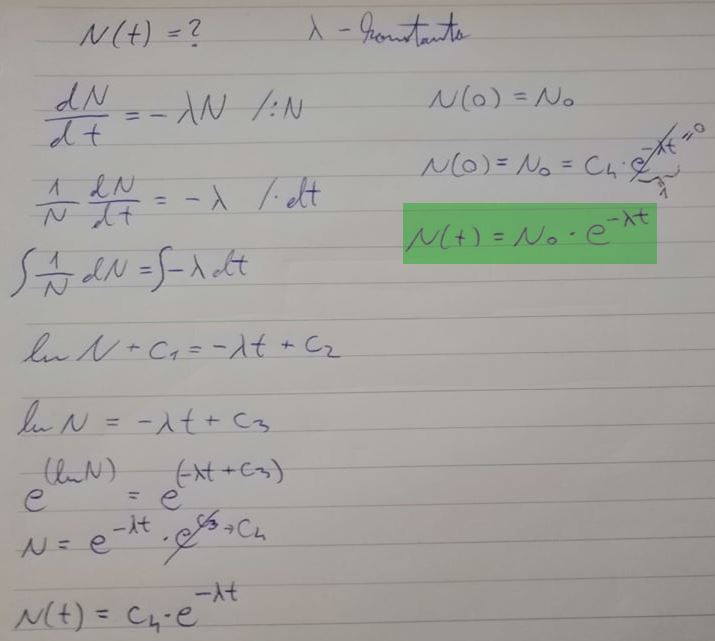 N(t) = ? λ - konstanta
dN/dt = -λN /:N
1/N dN/dt = -λ /·dt
∫ 1/N dN = ∫ -λ dt
ln N + C₁ = -λt + C₂
ln N = -λt + C₃
e^(ln N) = e^(-λt + C₃)
N = e^-λt · e^C₃ → C₄
N(t) = C₄ · e^-λt
N(0) = N₀
N(0) = N₀ = C₄ · e^-λt = 0
1
N(t) = N₀ · e^-λt